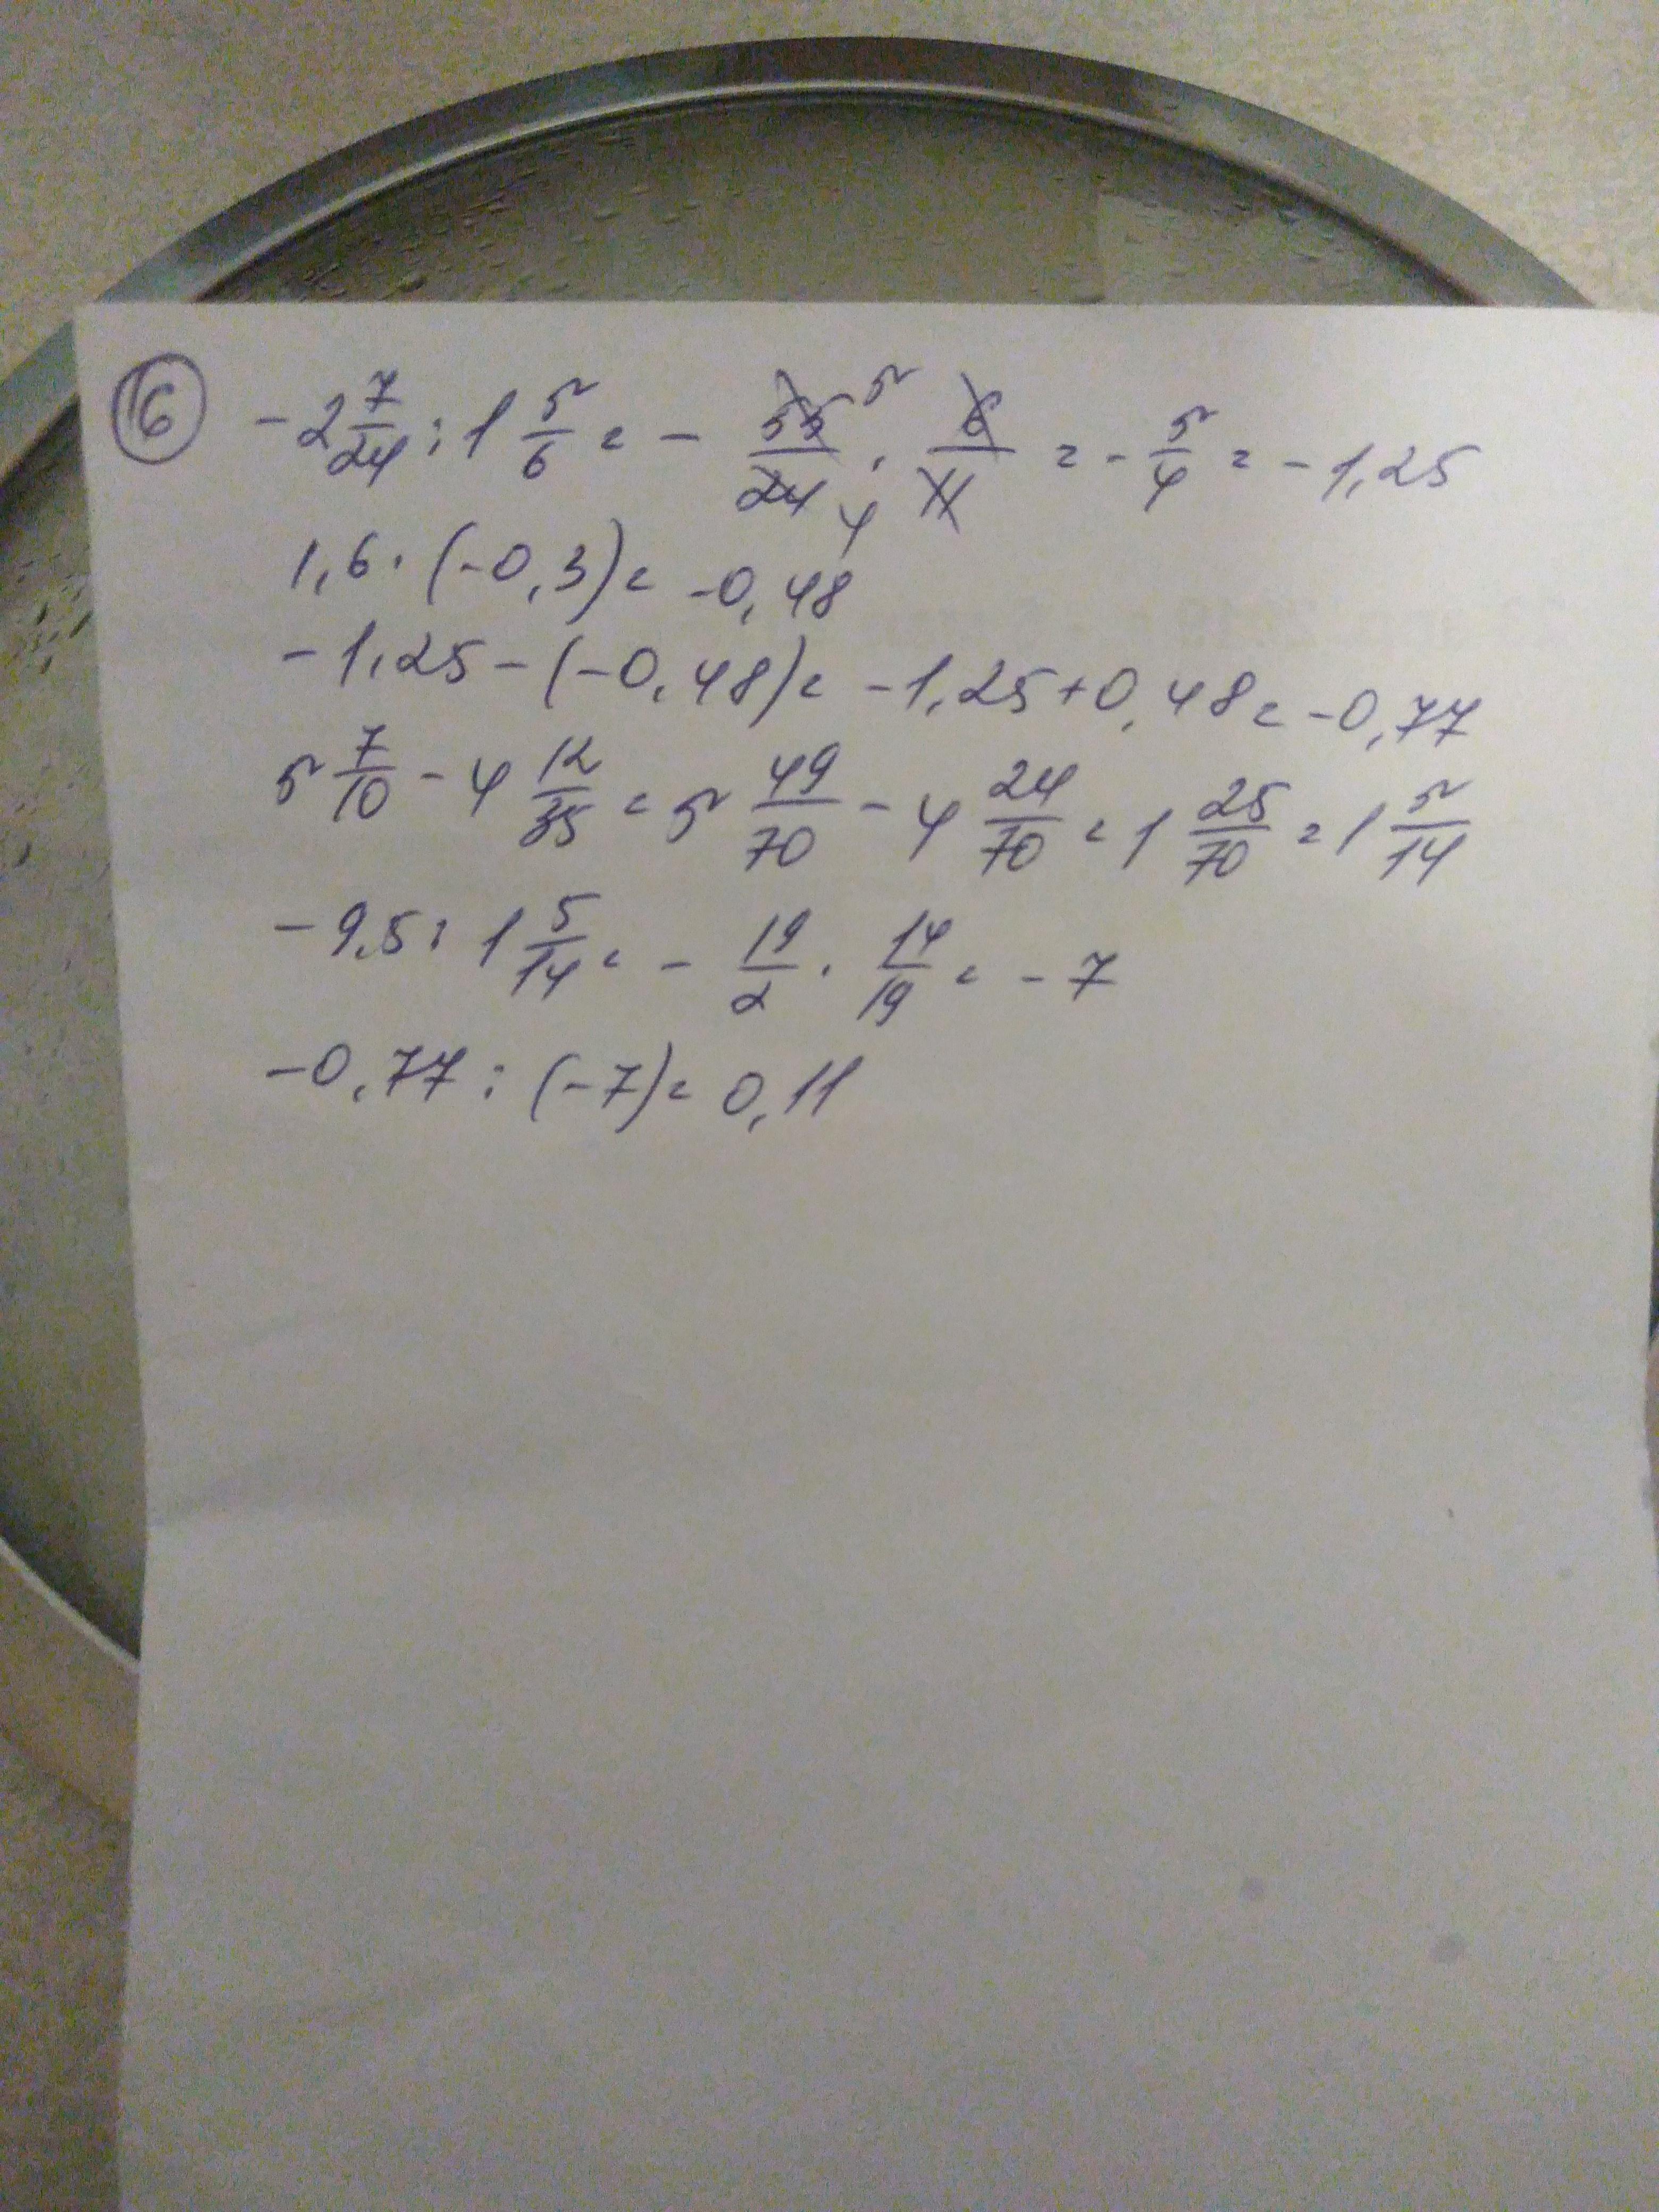 16 -2 7/24 : 1 5/6 = - 55/24 · 6/11 = - 5/4 = -1,25
1,6 · (-0,3) = -0,48
-1,25 - (-0,48) = -1,25 + 0,48 = -0,77
5 7/10 - 4 12/35 = 5 49/70 - 4 24/70 = 1 25/70 = 1 5/14
-9,5 : 1 5/14 = - 19/2 · 14/19 = -7
-0,77 : (-7) = 0,11